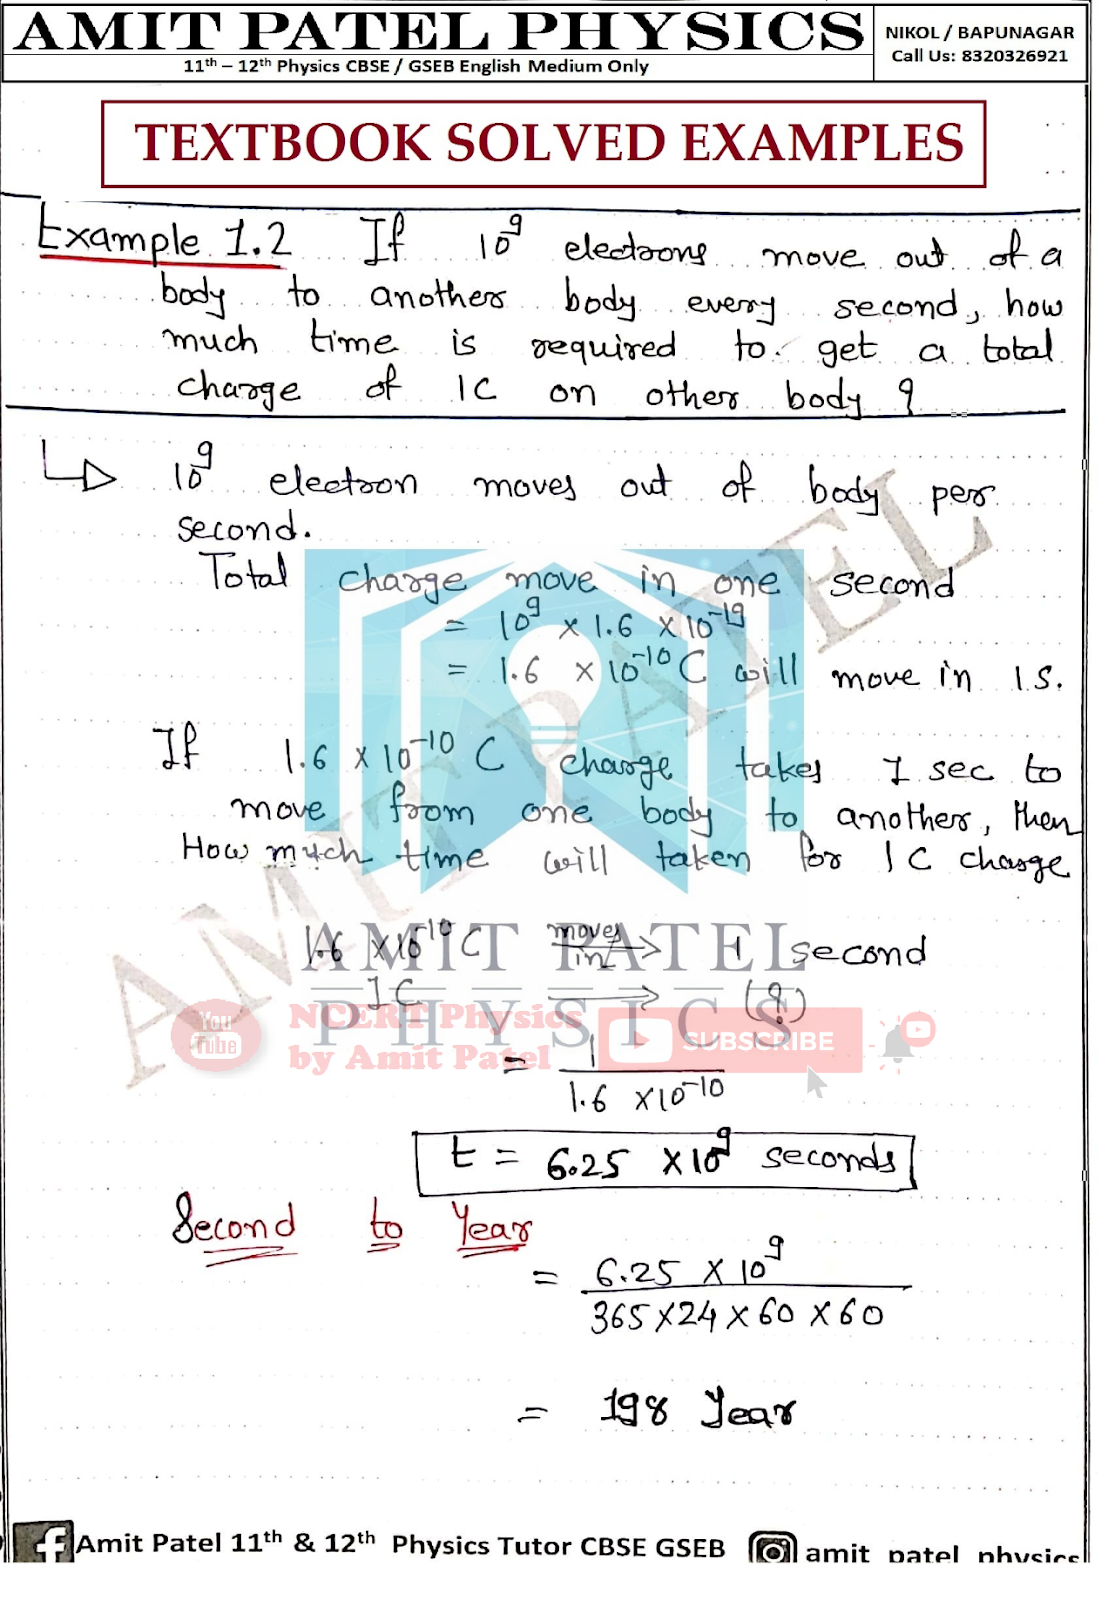 AMIT PATEL PHYSICS
11th – 12th Physics CBSE / GSEB English Medium Only
NIKOL / BAPUNAGAR
Call Us: 8320326921
TEXTBOOK SOLVED EXAMPLES
Example 1.2 If 10⁹ electrons move out of a
body to another body every second, how
much time is required to get a total
charge of 1C on other body ?
10⁹ electron moves out of body per
second.
Total charge move in one second
= 10⁹ × 1.6 × 10⁻¹⁹
= 1.6 × 10⁻¹⁰ C will move in 1 S.
If 1.6 × 10⁻¹⁰ C charge takes 1 sec to
move from one body to another, then
How much time will taken for 1 C charge
1.6 × 10⁻¹⁰ C moves in → 1 second
1C → (?)
= 1 / 1.6 × 10⁻¹⁰
t = 6.25 × 10⁹ seconds
Second to Year
= 6.25 × 10⁹
365 × 24 × 60 × 60
= 198 Year
AMIT PATEL
AMIT PATEL
PHYSICS
You Tube
NCERT Physics
by Amit Patel
SUBSCRIBE
f Amit Patel 11th & 12th Physics Tutor CBSE GSEB
amit_patel_physics